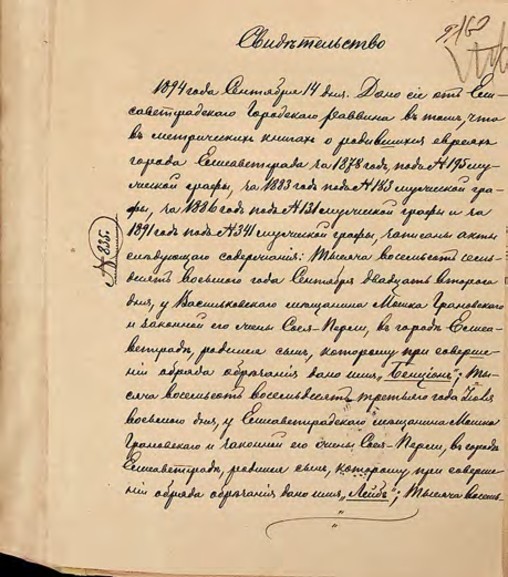 Свидѣтельство
1894 года Сентября 14 дня. Дано сіе отъ Ели-
саветградскаго Городскаго Раввина въ томъ, что
въ метрическихъ книгахъ о родившихся евреяхъ
города Елисаветграда за 1878 годъ, подъ № 195 му-
жеской графы, за 1883 годъ подъ № 183 мужеской гра-
фы, за 1886 годъ подъ № 131 мужеской графы и за
1891 годъ подъ № 341 мужеской графы, записаны акты
слѣдующаго содержанія: Тысяча восемьсотъ семь-
десятъ восьмого года Сентября двадцать второго
дня, у Васильковскаго мещанина Мошка Грановскаго
и законной его жены Сося-Перли, въ городѣ Елиса-
ветградѣ, родился сынъ, которому при соверше-
ніи обряда обрѣзанія дано имя „Бенціонъ"; Ты-
сяча восемьсотъ восемьдесятъ третьяго года Іюля
восьмого дня, у Елисаветградскаго мещанина Мошка
Грановскаго и законной его жены Сося-Перли, въ городѣ
Елисаветградѣ, родился сынъ, которому при соверше-
ніи обряда обрѣзанія дано имя „Лейбъ"; Тысяча восемь-
№ 835.